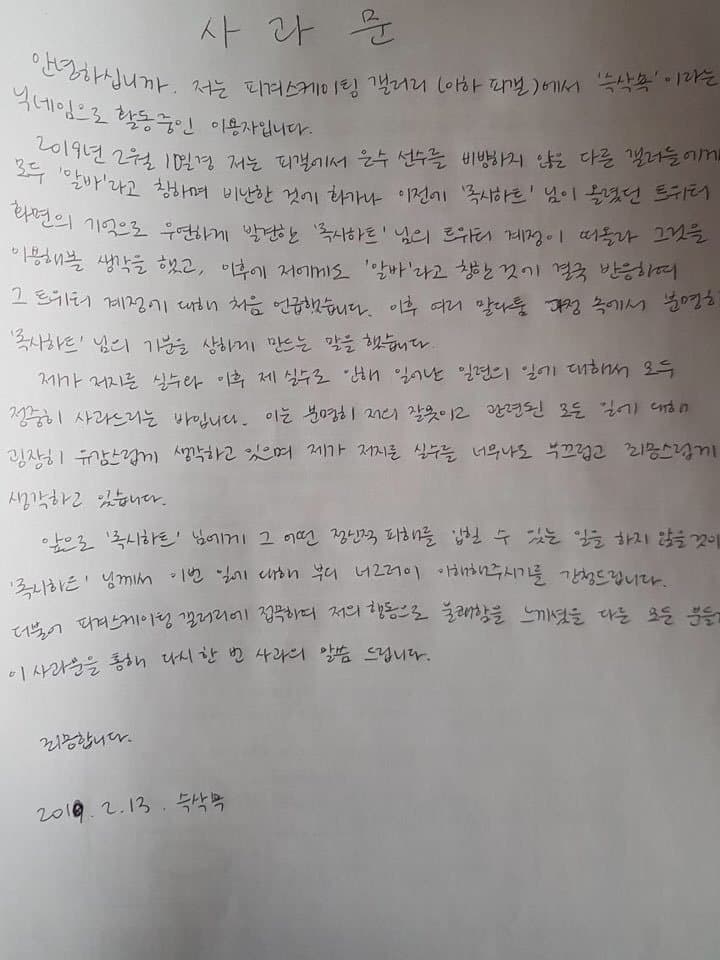 사 과 문
안녕하십니까. 저는 피겨스케이팅 갤러리(이하 피갤)에서 '슥삭뽁'이라는
닉네임으로 활동중인 이용자입니다.
2019년 2월 10일경 저는 피갤에서 은수 선수를 비방하지 않은 다른 갤러들에게
모두 '알바'라고 칭하며 비난한 것에 화가나 이전에 '록시하트' 님이 올렸던 트위터
화면의 기억으로 우연하게 발견한 '록시하트' 님의 트위터 계정이 떠올라 그것을
이용해볼 생각을 했고, 이후에 저에게도 '알바'라고 칭한 것에 결국 반응하여
그 트위터 계정에 대해 처음 언급했습니다. 이후 여러 말다툼 과정 속에서 분명히
'록시하트' 님의 기분을 상하게 만드는 말을 했습니다.
제가 저지른 실수와 이후 제 실수로 인해 일어난 일련의 일에 대해서 모두
정중히 사과드리는 바입니다. 이는 분명히 저의 잘못이고 관련된 모든 일에 대해
굉장히 유감스럽게 생각하고 있으며 제가 저지른 실수를 너무나도 부끄럽고 죄송스럽게
생각하고 있습니다.
앞으로 '록시하트' 님에게 그 어떤 정신적 피해를 입힐 수 있는 일을 하지 않을 것이
'록시하트' 님께서 이번 일에 대해 부디 너그러이 이해해주시기를 간청드립니다.
더불어 피겨스케이팅 갤러리에 접속하여 저의 행동으로 불쾌함을 느끼셨을 다른 모든 분들
이 사과문을 통해 다시 한 번 사과의 말씀 드립니다.
죄송합니다.
2019. 2. 13.